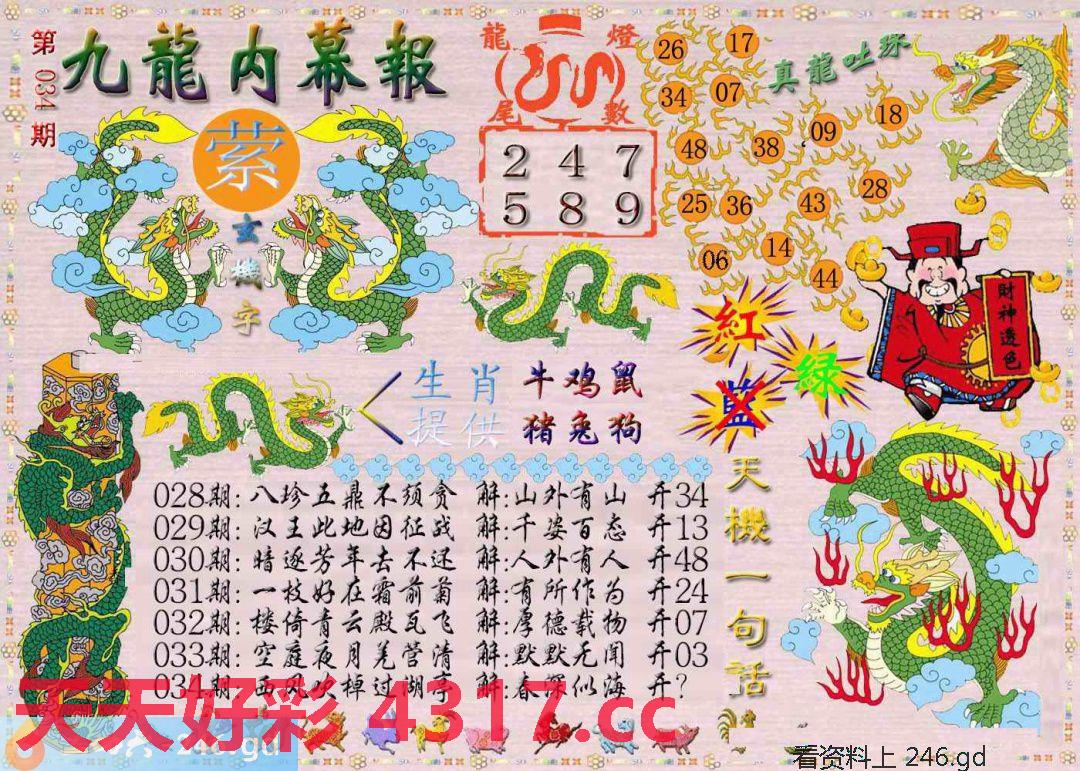 第034期
九龍内幕報
萦
玄機字
龍燈
尾數
2 4 7
5 8 9
真龍吐珠
26 17
34 07
48 38 09 18
25 36 43 28
06 14 44
財神透色
紅
藍
绿
生肖提供
牛鸡鼠
猪兔狗
028期: 八珍五鼎不须贪 解:山外有山 开34
029期: 汉王此地因征战 解:千姿百态 开13
030期: 暗逐芳年去不还 解:人外有人 开48
031期: 一枝好在霜前菊 解:有所作为 开24
032期: 楼倚青云殿瓦飞 解:厚德载物 开07
033期: 空庭夜月羌管清 解:默默无闻 开03
034期: 掉过湖亭 解:春深似海 开?
天機一句話
天天好彩 4317.cc
246.gd
看资料上 246.gd